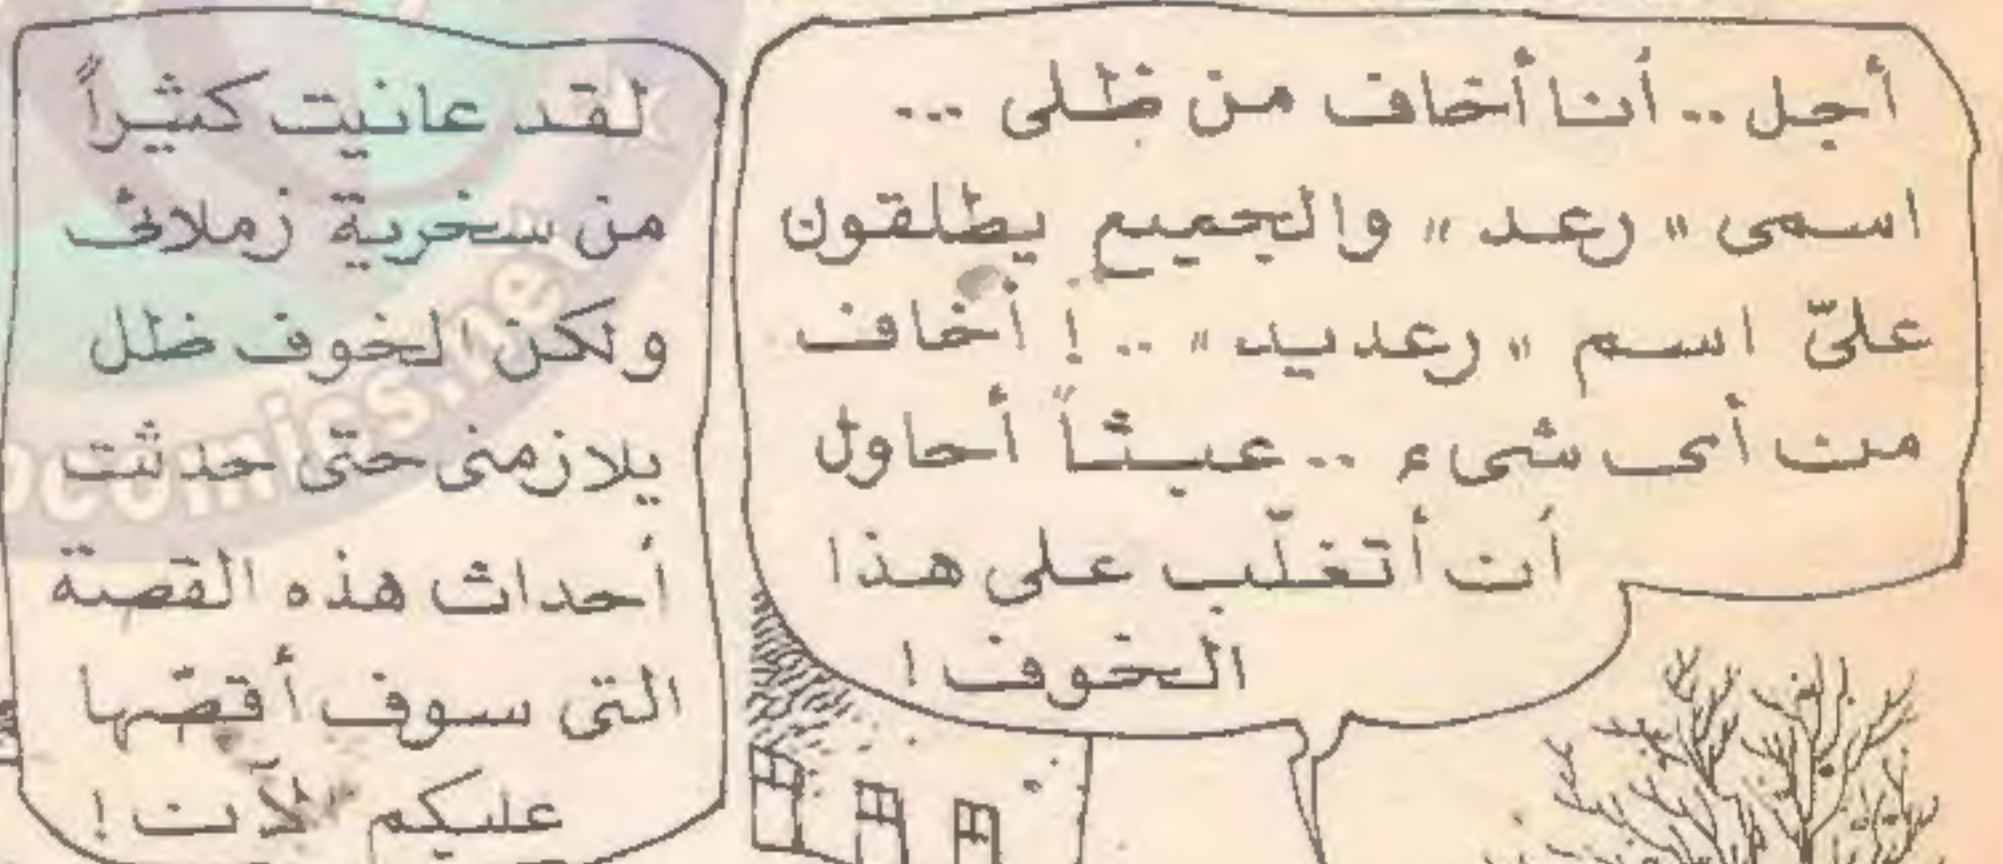 أجل .. أنا أخاف من ظلى ...
اسمى « رعد » والجميع يطلقون
علىّ اسم « رعديد » .. ! أخاف
من أى شىء .. عبثاً أحاول
أن أتغلّب على هذا
الخوف !
لقد عانيت كثيراً
من سخرية زملائى
ولكن الخوف ظل
يلازمنى حتّى حدثت
أحداث هذه القصة
التى سوف أقصّها
عليكم الآن !